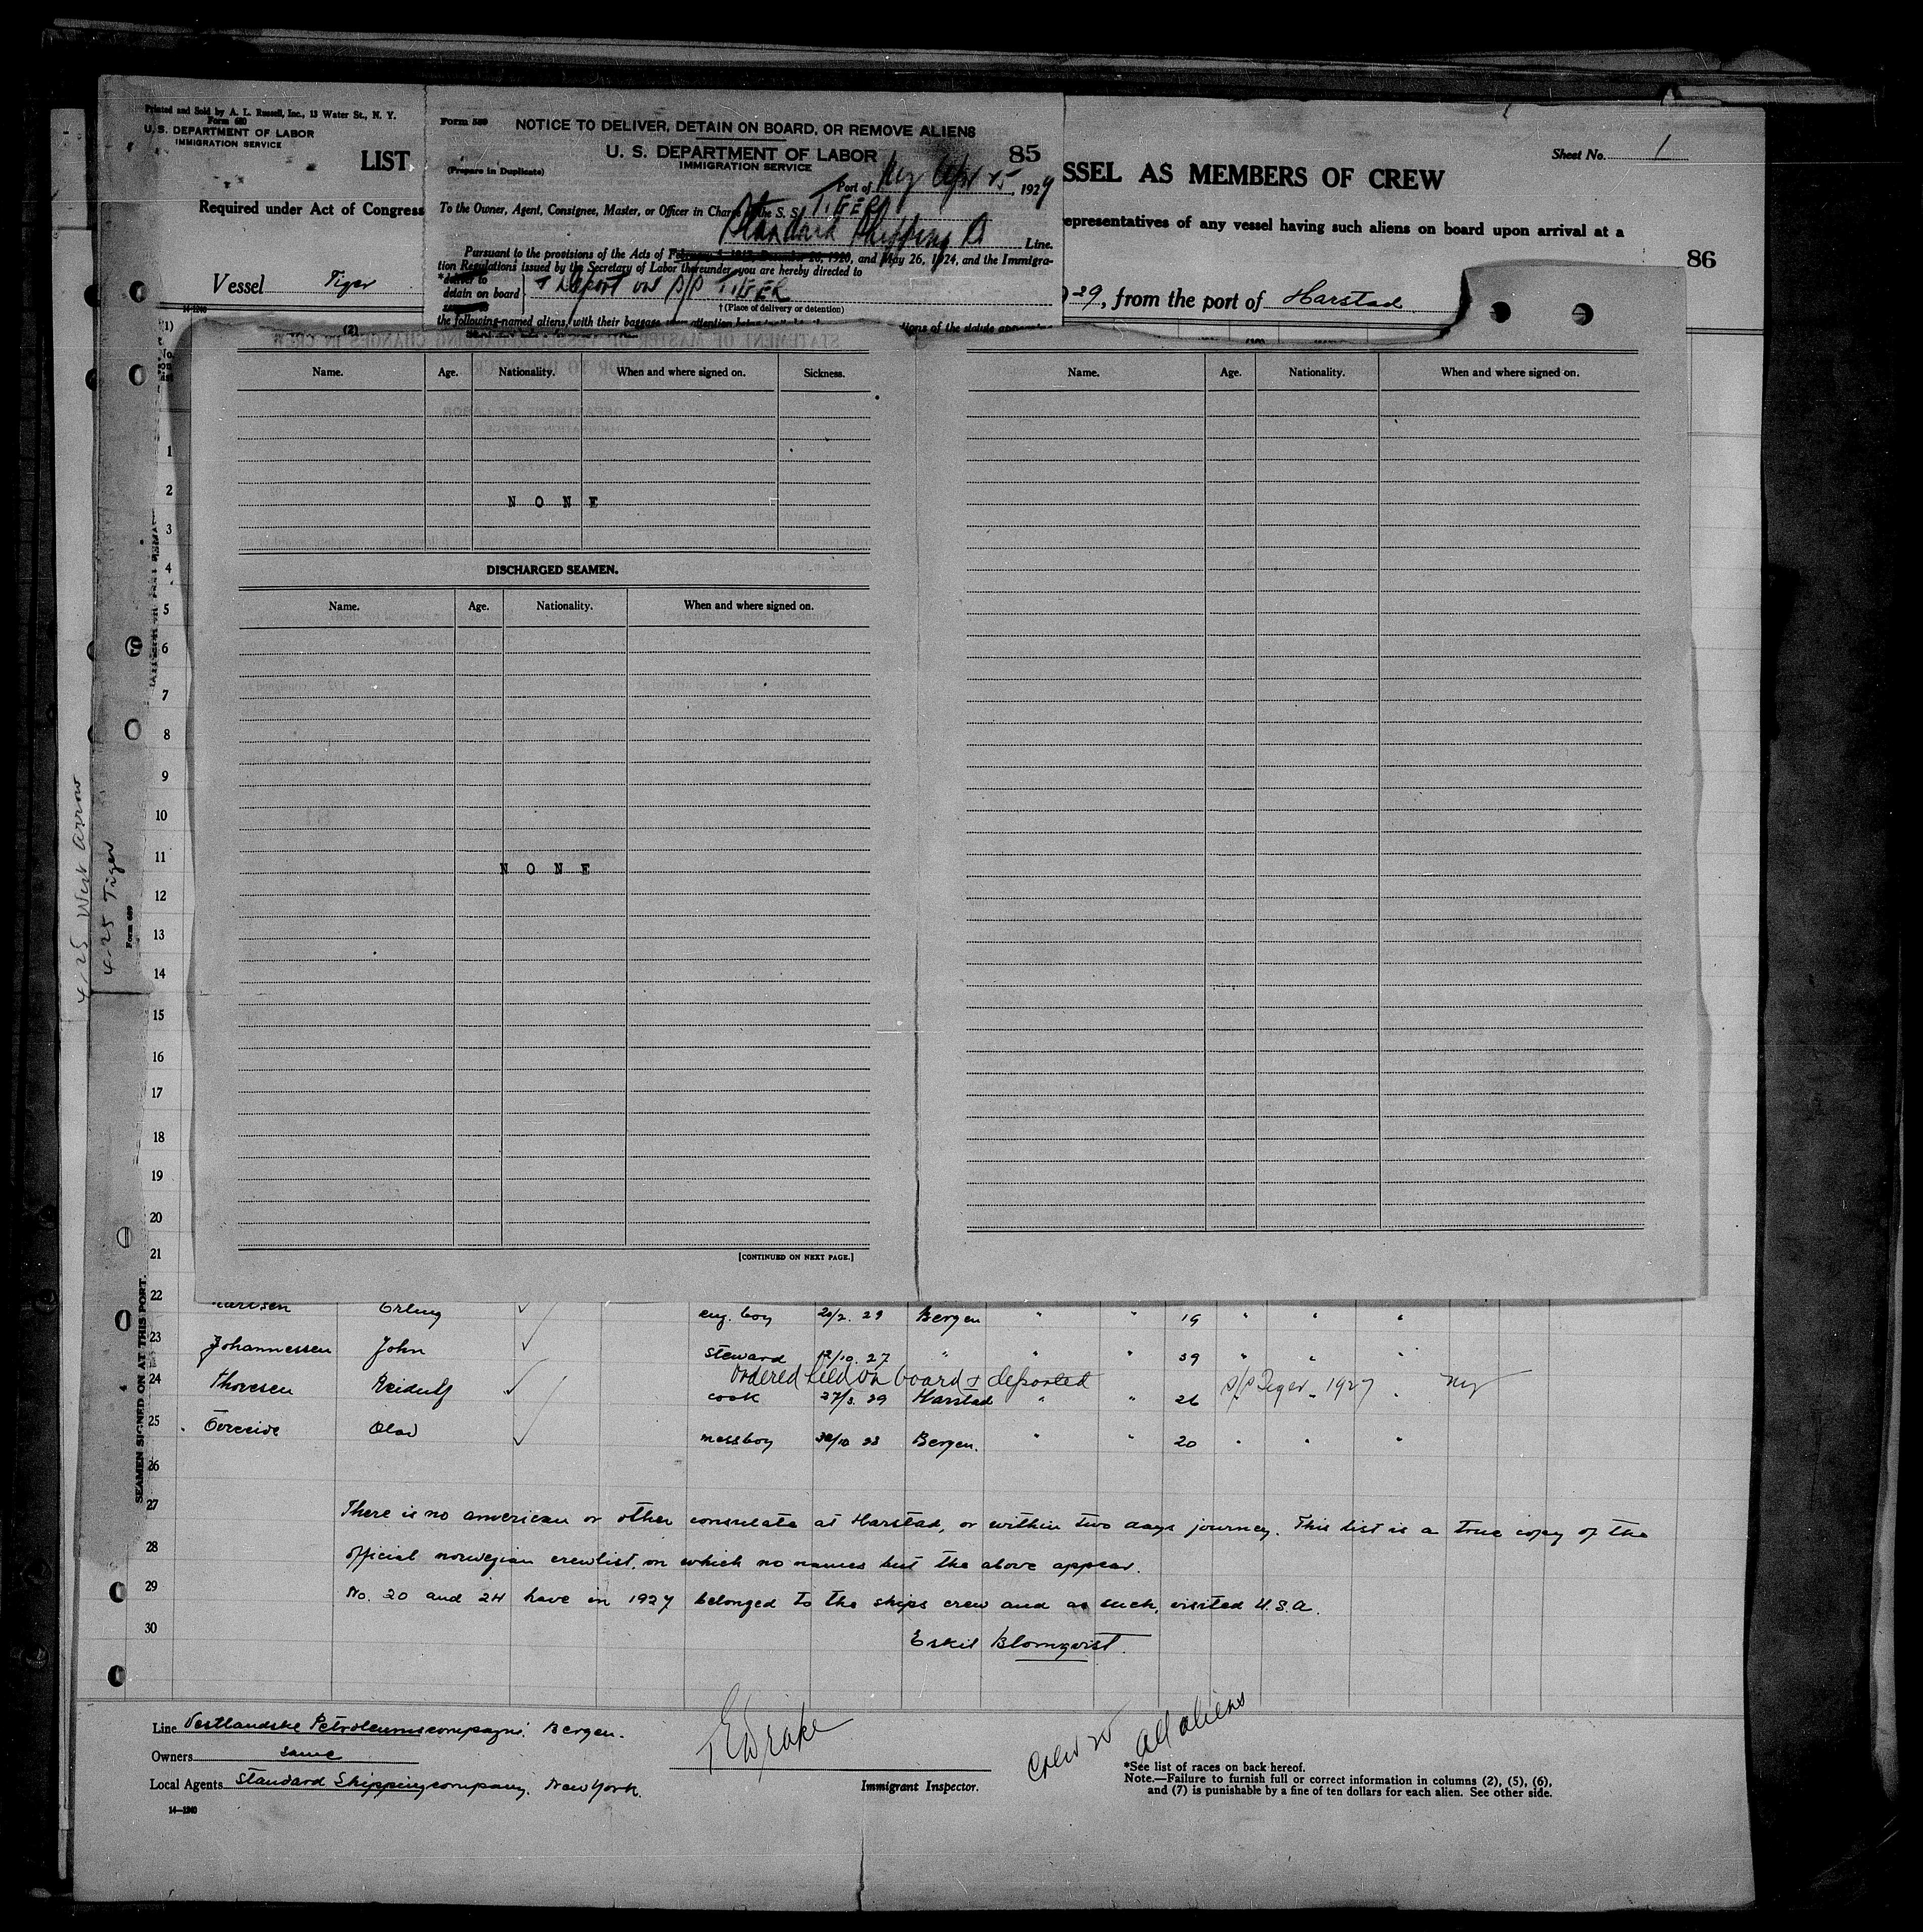 Printed and Sold by A. L. Russell, Inc., 13 Water St., N. Y.
Form 680
U. S. DEPARTMENT OF LABOR
IMMIGRATION SERVICE
LIST
Required under Act of Congress
Vessel Tiger
14-1240
(1) (2)
Form 589
NOTICE TO DELIVER, DETAIN ON BOARD, OR REMOVE ALIENS
U. S. DEPARTMENT OF LABOR
IMMIGRATION SERVICE
85
(Prepare in Duplicate)
Port of NY Apr 25, 1929
To the Owner, Agent, Consignee, Master, or Officer in Charge of the S. S. TIGER
Standard Shipping Co Line.
Pursuant to the provisions of the Acts of February 5, 1917, December 26, 1920, and May 26, 1924, and the Immigra-
tion Regulations issued by the Secretary of Labor thereunder, you are hereby directed to
*deliver to
detain on board
& Deport on S/S TIGER
† (Place of delivery or detention)
the following-named aliens, with their baggage
Sheet No. 1
SSEL AS MEMBERS OF CREW
epresentatives of any vessel having such aliens on board upon arrival at a
86
29, from the port of Harstad
Name. Age. Nationality. When and where signed on. Sickness.
NONE
DISCHARGED SEAMEN.
Name. Age. Nationality. When and where signed on.
NONE
[CONTINUED ON NEXT PAGE.]
Name. Age. Nationality. When and where signed on.
4/25 West Arrow
4-25 Tiger
Form 689
SEAMEN SIGNED ON AT THIS PORT.
1
2
3
4
5
6
7
8
9
10
11
12
13
14
15
16
17
18
19
20
21
22 Karlsen Erling ✓ eng. boy 20/2. 29 Bergen " " 19 " " "
23 Johannessen John ✓ steward 12/10. 27 " " " 39 " " "
Ordered held on board & deported
24 Thoresen Reidulf ✓ cook 27/3. 29 Harstad " " 26 S/S Tiger - 1927 " NY
25 Olav ✓ messboy 30/10 28 Bergen. " " 20 " " "
26
27 There is no american or other consulate at Harstad, or within two days journey. This list is a true copy of the
28 official norwegian crewlist, on which no names but the above appear.
29 No. 20 and 24 have in 1927 belonged to the ships crew and as such, visited U.S.A.
30 Eskil Blomqvist.
Line Vestlandske Petroleumscompagni. Bergen.
Owners same
Local Agents Standard Shipping company. New York.
14-1240
Drake
Immigrant Inspector.
Crew all aliens
*See list of races on back hereof.
Note.—Failure to furnish full or correct information in columns (2), (5), (6),
and (7) is punishable by a fine of ten dollars for each alien. See other side.